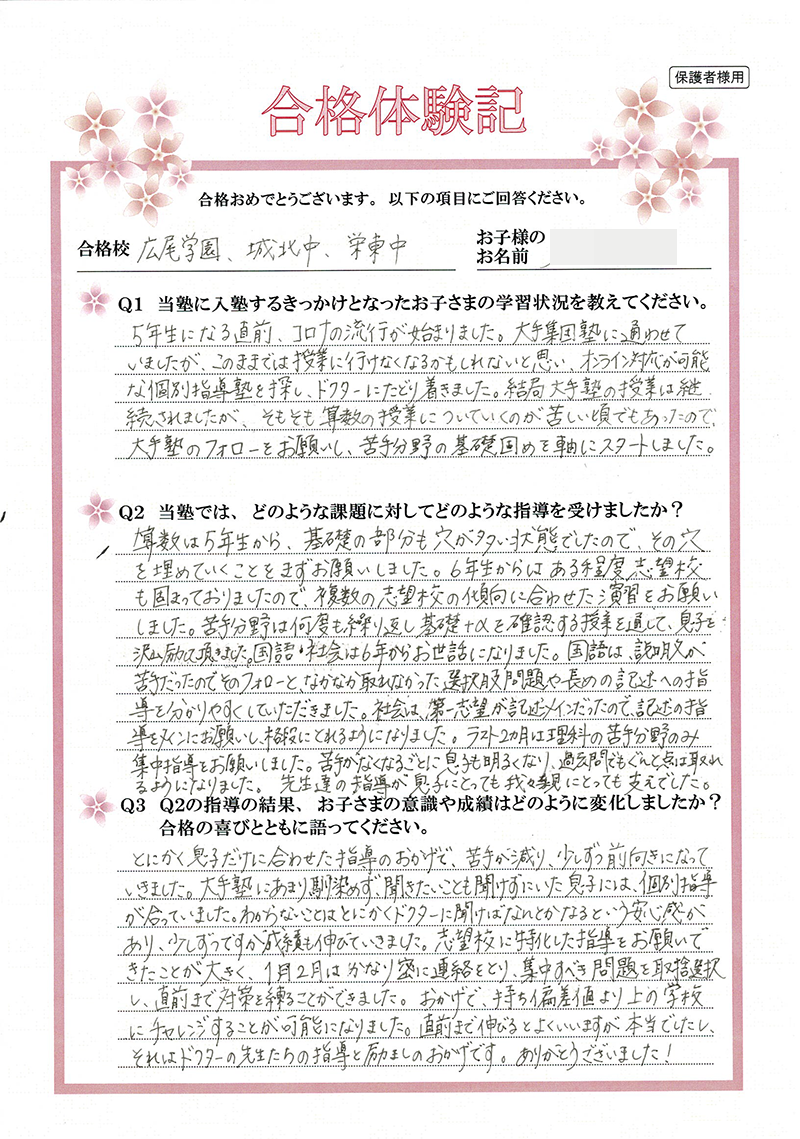 保護者様用
合格体験記
合格おめでとうございます。以下の項目にご回答ください。
合格校 広尾学園、城北中、栄東中
お子様の
お名前
Q1 当塾に入塾するきっかけとなったお子さまの学習状況を教えてください。
5年生になる直前、コロナの流行が始まりました。大手集団塾に通わせて
いましたが、このままでは授業に行けなくなるかもしれないと思い、オンライン対応が可能
な個別指導塾を探し、ドクターにたどり着きました。結局大手塾の授業は継
続されましたが、そもそも算数の授業についていくのが苦しい頃でもあったので、
大手塾のフォローをお願いし、苦手分野の基礎固めを軸にスタートしました。
Q2 当塾では、どのような課題に対してどのような指導を受けましたか？
算数は5年生から、基礎の部分も穴が多い状態でしたので、その穴
を埋めていくことをまずお願いしました。6年生からはある程度志望校
も固まっておりましたので、複数の志望校の傾向に合わせた演習をお願い
しました。苦手分野は何度も繰り返し基礎+αを確認する授業を通して、息子を
沢山励して頂きました。国語・社会は6年からお世話になりました。国語は、説明文が
苦手だったのでそのフォローと、なかなか取れなかった選択肢問題や長めの記述への指
導を分かりやすくしていただきました。社会は、第一志望が記述メインだったので、記述の指
導をメインにお願いし、格段にとれるようになりました。ラスト2カ月は理科の苦手分野のみ
集中指導をお願いしました。苦手がなくなるごとに息子も明るくなり、過去問でもぐんと点は取れ
るようになりました。先生達の指導が息子にとっても我々親にとっても支えでした。
Q3 Q2の指導の結果、お子さまの意識や成績はどのように変化しましたか？
合格の喜びとともに語ってください。
とにかく息子だけに合わせた指導のおかげで、苦手が減り、少しずつ前向きになって
いきました。大手塾にあまり馴染めず、聞きたいことも聞けずにいた息子には、個別指導
が合っていました。わからないことはとにかくドクターに聞けばなんとかなるという安心感が
あり、少しずつですが成績も伸びていきました。志望校に特化した指導をお願いで
きたことが大きく、1月2月はかなり密に連絡をとり、集中すべき問題を取捨選択
し、直前まで対策を練ることができました。おかげで、持ち偏差値より上の学校
にチャレンジすることが可能になりました。直前まで伸びるとよくいいますが本当でしたし、
それはドクターの先生たちの指導と励ましのおかげです。ありがとうございました！